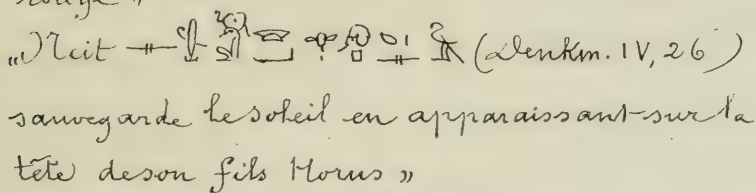 rouge »
„Neit (Denkm. IV, 26)
sauvegarde le soleil en apparaissant sur la
tête de son fils Horus »